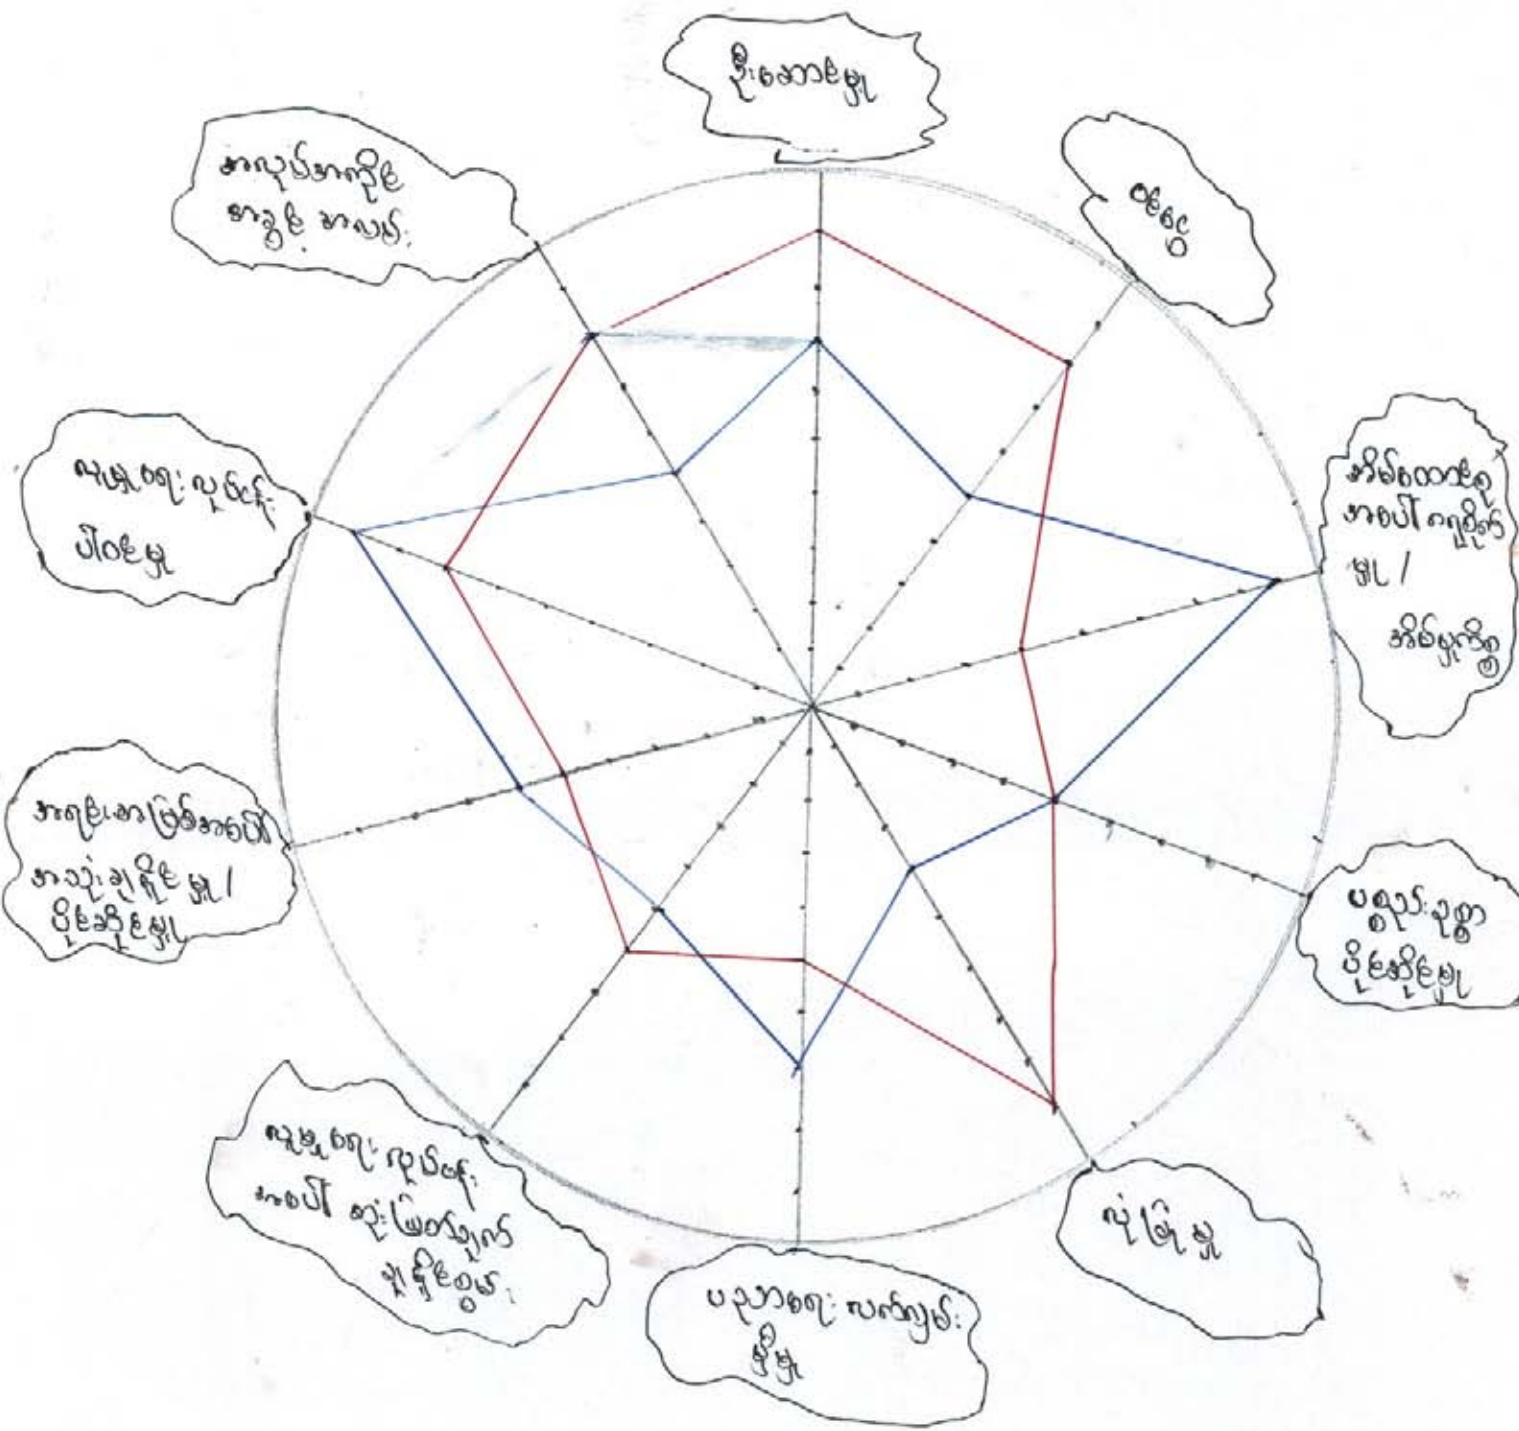 ဦးဆောင်မှု
ဝင်ငွေ
အိမ်ထောင်စု
အပေါ် ဂရုစိုက်
မှု /
အိမ်မှုကိစ္စ
ပစ္စည်းဥစ္စာ
ပိုင်ဆိုင်မှု
လုံခြုံမှု
ပညာရေး လက်လှမ်း
မှီမှု
လူမှုရေး လုပ်ငန်း
အပေါ် ဆုံးဖြတ်ချက်
ချနိုင်စွမ်း
အရင်းအမြစ်အပေါ်
အသုံးချနိုင်မှု /
ပိုင်ဆိုင်မှု
လူမှုရေး လုပ်ငန်း
ပါဝင်မှု
အလုပ်အကိုင်
အခွင့် အလမ်း